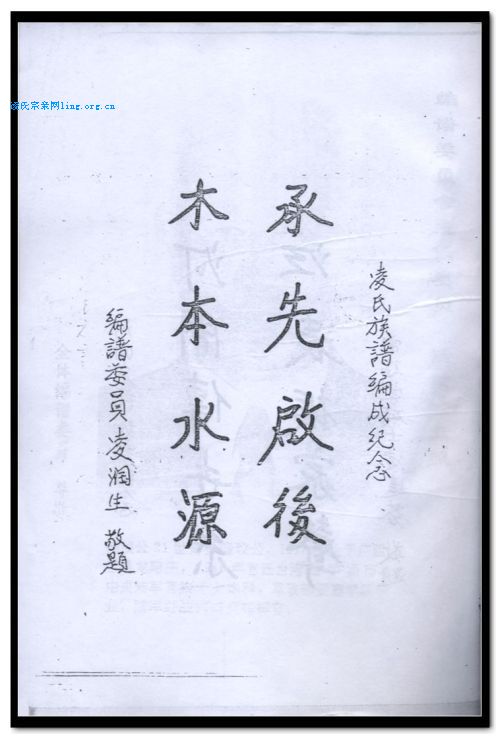 凌氏宗亲网ling.org.cn
凌氏族譜編成紀念
承先啟後
木本水源
編譜委員凌润生 敬題